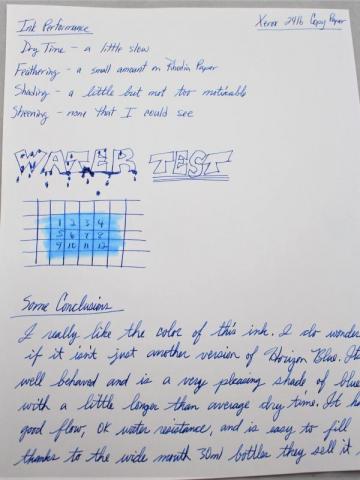 Ink Performance
Xerox 24lb Copy Paper
Dry Time - a little slow
Feathering - a small amount on Rhodia Paper
Shading - a little but not too noticeable
Sheening - none that I could see
WATER TEST
1 2 3 4
5 6 7 8
9 10 11 12
Some Conclusions
I really like the color of this ink. I do wonder
if it isn't just another version of Horizon Blue. It's
well behaved and is a very pleasing shade of blue
with a little longer than average dry time. It has
good flow, OK water resistance, and is easy to fill
thanks to the wide mouth 30ml bottles they sell it